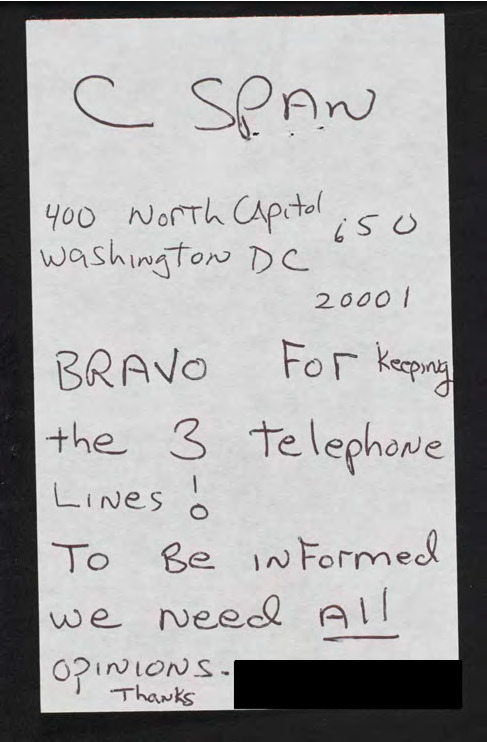 C SPAN
400 North Capitol 650
Washington DC
20001
BRAVO For keeping
the 3 telephone
Lines!
To Be inFormed
we need All
OPINIONS.
Thanks